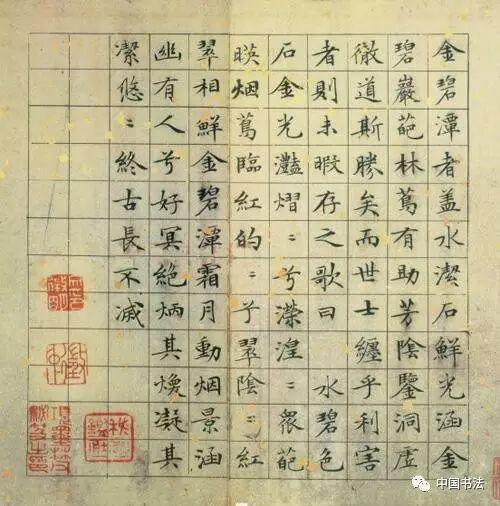 金碧潭者盖水潔石鮮光涵金
碧巖葩林蔦有助芳陰鑒洞虛
徹道斯勝矣而世士纏乎利害
者則未暇存之歌曰 水碧色
石金光灎熠〻兮瀠湟〻眾葩
暎烟蔦臨紅的〻兮翠陰〻紅
翠相鮮金碧潭霜月動烟景涵
幽有人兮好冥絶炳其煥凝其
潔悠〻終古長不滅
中国书法